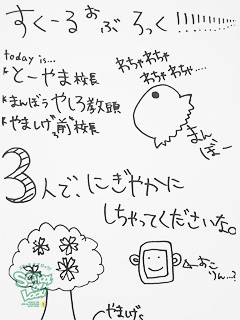 すくーるおぶろっく!!!!!!!!!!
today is...
*とーやま校長
*まんぼうやしろ教頭
*やましげ前校長
わちゃわちゃ
わちゃわちゃ....
まんぼー
3人で、にぎやかに
しちゃってくださいな。
←おこりん..?
やましげ